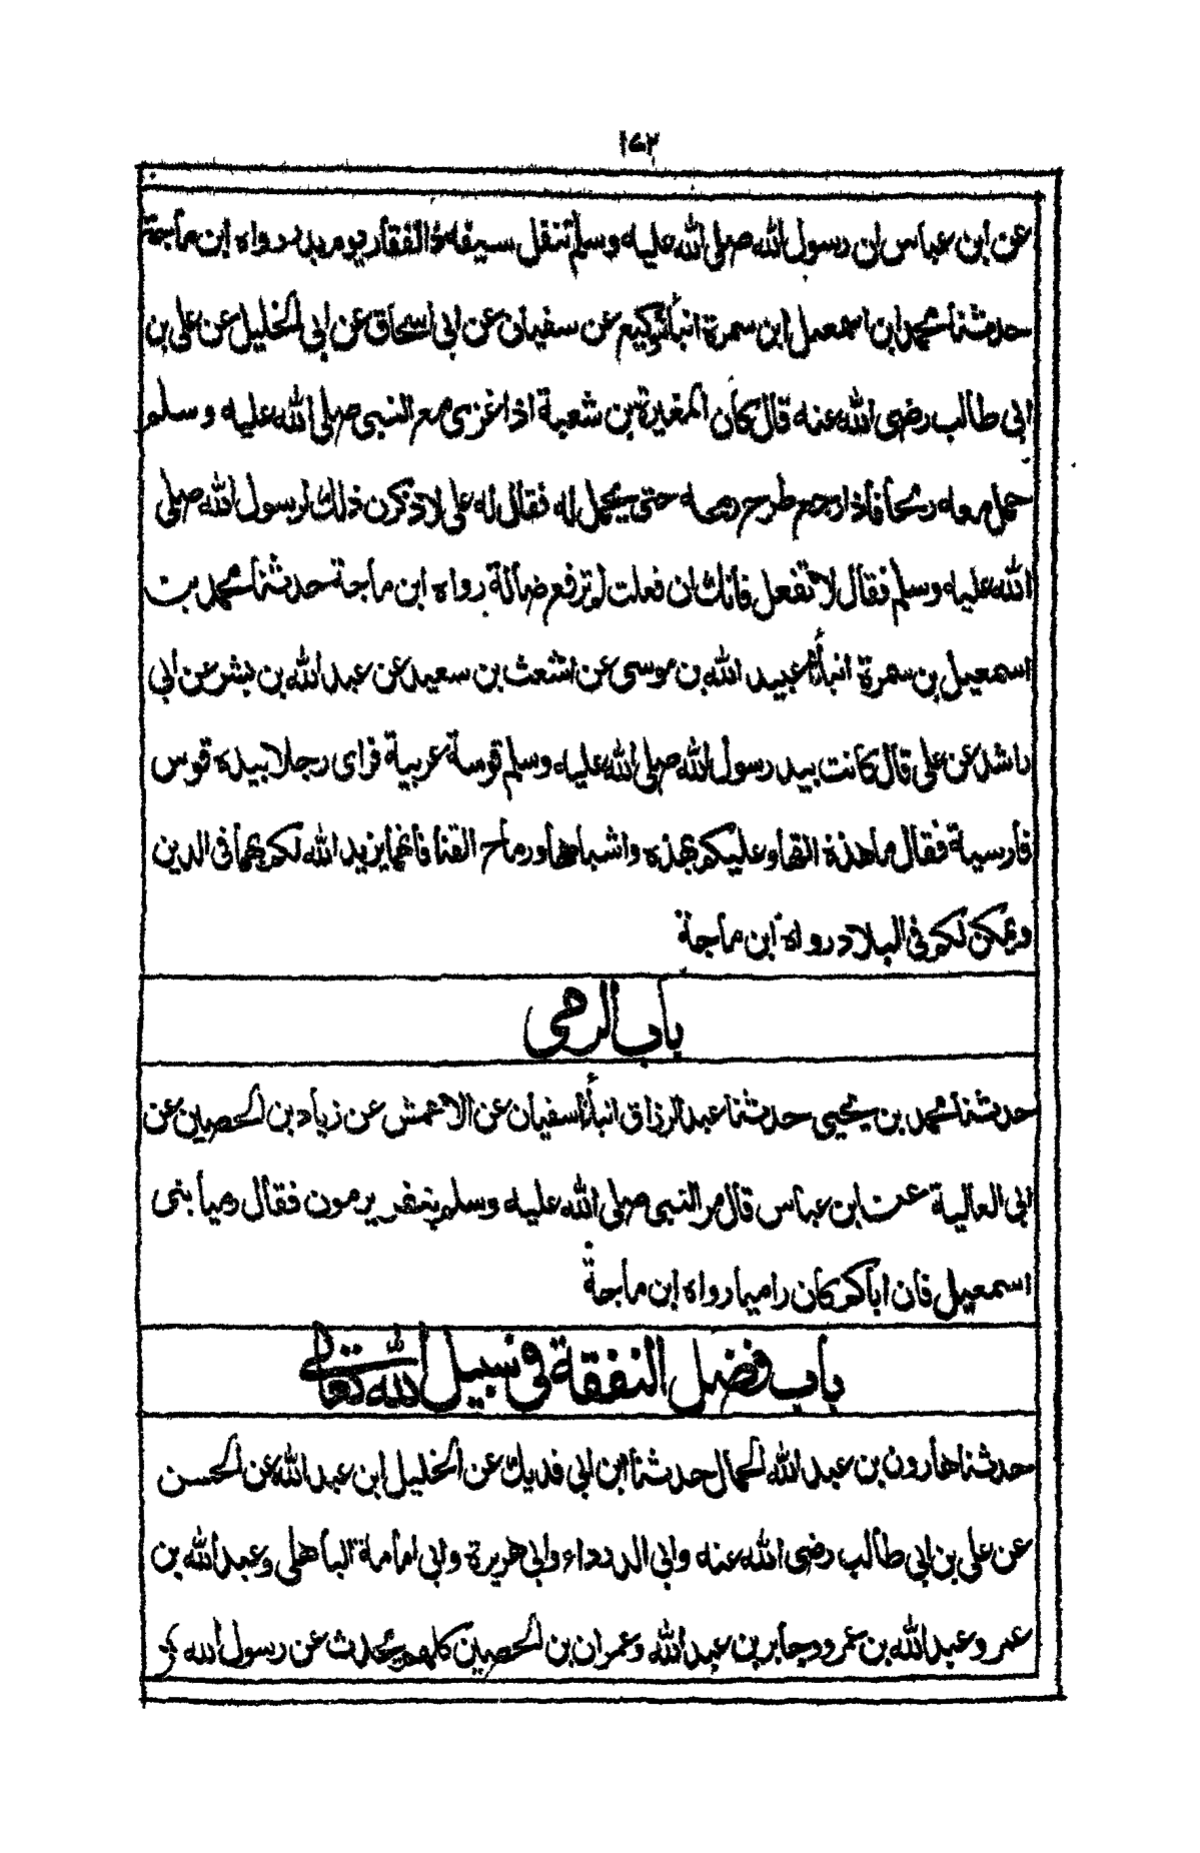 ١٤٢
عن ابن عباس ان رسول الله صلى الله عليه وسلم تنفل سيفه ذا الفقار يوم بدر رواه ابن ماجة
حدثنا محمد ابن اسمعيل ابن سمرة انبأنا وكيع عن سفيان عن ابى اسحاق عن ابى الخليل عن على بن
ابى طالب رضى الله عنه قال كان المغيرة بن شعبة اذا غزى مع النبى صلى الله عليه وسلم
حمل معه رمحا فاذا رجع طرح رمحه حتى يحمل له فقال له على لاذكرن ذلك لرسول الله صلى
الله عليه وسلم فقال لا تفعل فانك ان فعلت لم ترفع ضالة رواه ابن ماجة حدثنا محمد بن
اسمعيل بن سمرة انبأنا عبيد الله بن موسى عن اشعث بن سعيد عن عبد الله بن بشر عن ابى
راشد عن على قال كانت بيد رسول الله صلى الله عليه وسلم قوسة عربية فراى رجلا بيده قوس
فارسية فقال ما هذه القها وعليكم بهذه واشباهها ورماح القنا فانما يزيد الله لكم بهما فى الدين
ويمكن لكم فى البلاد رواه ابن ماجة
باب الرمى
حدثنا محمد بن يحيى حدثنا عبد الرزاق انبأنا سفيان عن الاعمش عن زياد بن الحصين عن
ابى العالية عن ابن عباس قال مر النبى صلى الله عليه وسلم بنفر يرمون فقال رميا بنى
اسمعيل فان اباكم كان راميا رواه ابن ماجة
باب فضل النفقة فى سبيل الله تعالى
حدثنا هارون بن عبد الله الحمال حدثنا ابن ابى فديك عن الخليل ابن عبد الله عن الحسن
عن على بن ابى طالب رضى الله عنه وابى الدرداء وابى هريرة وابى امامة الباهلى وعبد الله بن
عمر وعبد الله بن عمرو وجابر بن عبد الله وعمران بن الحصين كلهم يحدث عن رسول الله